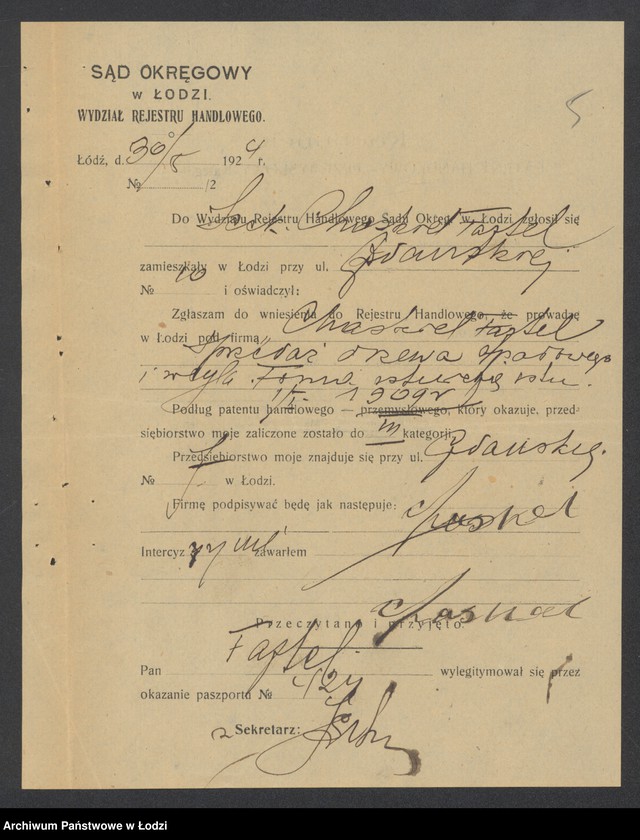 SĄD OKRĘGOWY
w ŁODZI.
WYDZIAŁ REJESTRU HANDLOWEGO.
5
Łódź, d. 30/5 1924 r.
№ /2
Do Wydziału Rejestru Handlowego Sądu Okręg. w Łodzi zgłosił się
Chaskiel Fajfel
zamieszkały w Łodzi przy ul. Gdańskiej
№ 10 i oświadczył:
Zgłaszam do wniesienia do Rejestru Handlowego, że prowadzę
w Łodzi pod firmą Chaskiel Fajfel
Sprzedaż drzewa opałowego
i węgla. Firma istnieje
1909 r
Podług patentu handlowego — przemysłowego, który okazuję, przed-
siębiorstwo moje zaliczone zostało do III kategorji.
Przedsiębiorstwo moje znajduje się przy ul. Gdańskiej.
№ w Łodzi.
Firmę podpisywać będę jak następuje: Chaskel
Intercyzy nie zawarłem
Chaskel
Przeczytano i przyjęto.
Fajfel
Pan wylegitymował się przez
okazanie paszportu №
Sekretarz:
Archiwum Państwowe w Łodzi